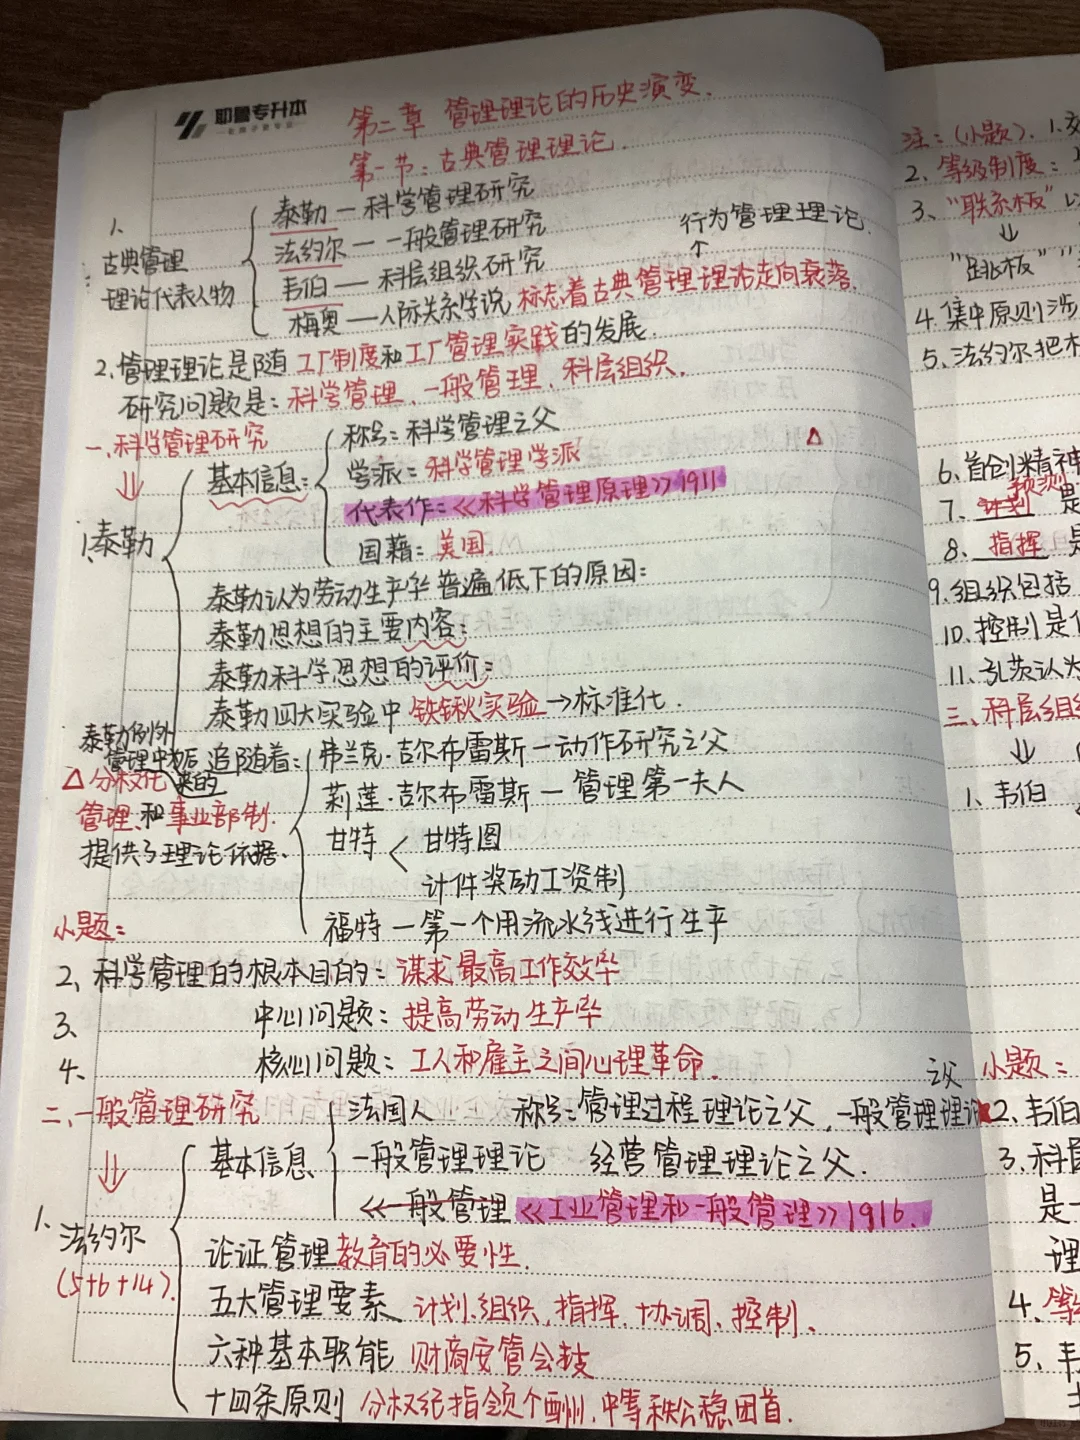 耶鲁专升本
第二章 管理理论的历史演变.
第一节:古典管理理论.
1、
古典管理
理论代表人物
泰勒—科学管理研究
法约尔—一般管理研究
韦伯—科层组织研究
梅奥—人际关系学说 标志着古典管理理论走向衰落.
↑
行为管理理论.
2、管理理论是随工厂制度和工厂管理实践的发展.
研究问题是:科学管理、一般管理、科层组织.
一、科学管理研究
1.泰勒
基本信息:
称号:科学管理之父
学派:科学管理学派
代表作:《科学管理原理》1911
国籍:美国.
泰勒认为劳动生产率普遍低下的原因:
泰勒思想的主要内容:
泰勒科学思想的评价:
泰勒四大实验中铁锹实验→标准化.
追随着:
弗兰克·吉尔布雷斯—动作研究之父
莉莲·吉尔布雷斯—管理第一夫人
甘特
甘特图
计件奖励工资制
福特—第一个用流水线进行生产
泰勒例外
管理中为后来的
△分权化
管理、和事业部制.
提供了理论依据.
小题:
2、科学管理的根本目的:谋求最高工作效率
3、中心问题:提高劳动生产率
4、核心问题:工人和雇主之间心理革命.
二、一般管理研究
1、法约尔
(5+6+14).
基本信息
法国人 称号:管理过程理论之父,一般管理理论之父
一般管理理论 经营管理理论之父.
《一般管理《工业管理和一般管理》1916.
论证管理教育的必要性.
五大管理要素 计划.组织、指挥、协调、控制、
六种基本职能 财商安管会技
十四条原则 分权纪指领个酬.中等秩公稳团首.
注:(小题).1、
2、等级制度:
3、"联系板"以
↓
"跳板"
4.集中原则涉
5、法约尔把
6、首创精神
预测
7、计划 是
8、指挥 是
9.组织包括
10、控制是
11、孔茨认为
三、科层组织
1、韦伯
小题:
2、韦伯
3、科层
是一
理
4、等级
5、韦